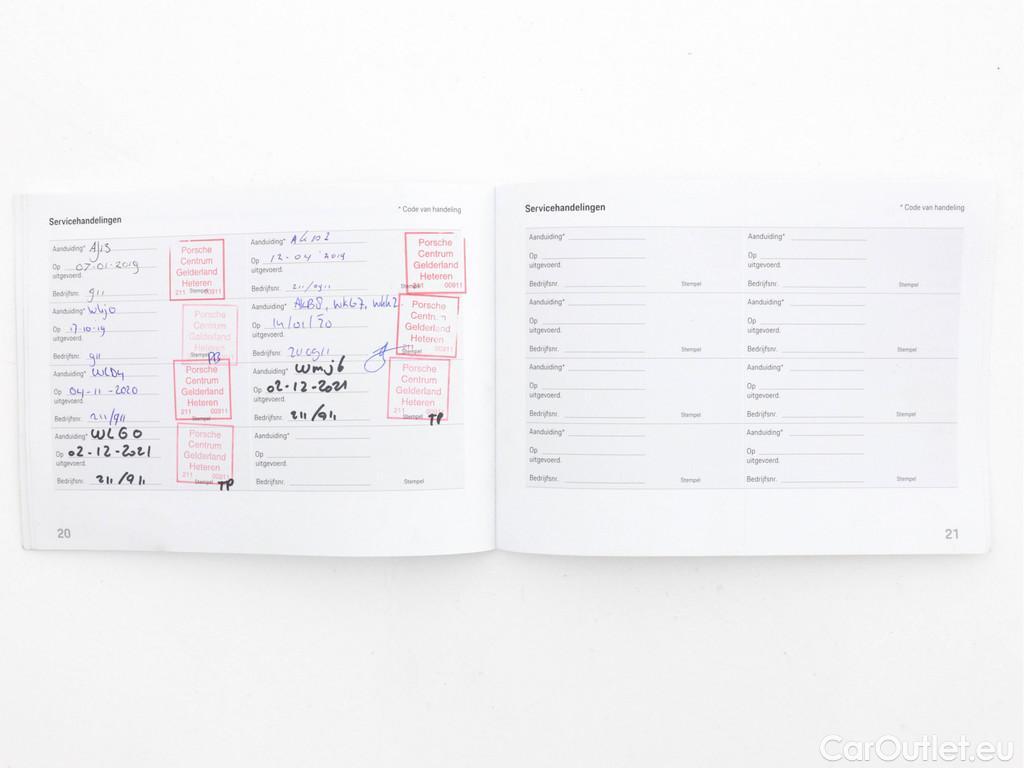 Servicehandelingen
* Code van handeling
Aanduiding* AJ13
Op 07-01-2019
uitgevoerd.
Bedrijfsnr. 911
Stempel
Porsche
Centrum
Gelderland
Heteren
211 00911
Aanduiding*
Op 12-04 2019
uitgevoerd.
Bedrijfsnr. 211/0911
Stempel
Porsche
Centrum
Gelderland
Heteren
211 00911
Aanduiding* WLJ0
Op 17-10-19
uitgevoerd.
Bedrijfsnr. 911
Stempel
Porsche
Centrum
Gelderland
Heteren
PB
Aanduiding* AKB8, WKG7, WKH2
Op 14/01/20
uitgevoerd.
Bedrijfsnr.
Porsche
Centrum
Gelderland
Heteren
00911
Aanduiding* WLD4
Op 04-11-2020
uitgevoerd.
Bedrijfsnr. 211/911
Stempel
Porsche
Centrum
Gelderland
Heteren
211 00911
Aanduiding* WMJ6
Op 02-12-2021
uitgevoerd.
Bedrijfsnr. 211/911
Stempel
Porsche
Centrum
Gelderland
Heteren
211 00911
TP
Aanduiding* WLG0
Op 02-12-2021
uitgevoerd.
Bedrijfsnr. 211/911
Stempel
Porsche
Centrum
Gelderland
Heteren
211 00911
TP
Aanduiding*
Op
uitgevoerd.
Bedrijfsnr.
Stempel
20
Servicehandelingen
* Code van handeling
Aanduiding*
Op
uitgevoerd.
Bedrijfsnr.
Stempel
Aanduiding*
Op
uitgevoerd.
Bedrijfsnr.
Stempel
Aanduiding*
Op
uitgevoerd.
Bedrijfsnr.
Stempel
Aanduiding*
Op
uitgevoerd.
Bedrijfsnr.
Stempel
Aanduiding*
Op
uitgevoerd.
Bedrijfsnr.
Stempel
Aanduiding*
Op
uitgevoerd.
Bedrijfsnr.
Stempel
Aanduiding*
Op
uitgevoerd.
Bedrijfsnr.
Stempel
Aanduiding*
Op
uitgevoerd.
Bedrijfsnr.
Stempel
21
CarOutlet.eu